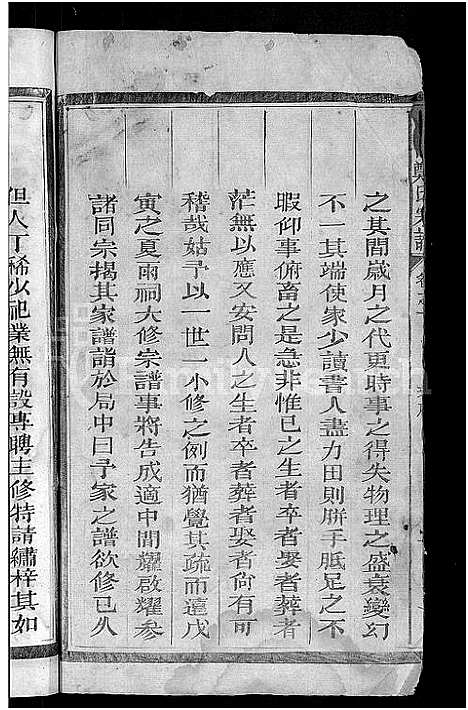 鄭氏宗譜
之其間歲月之代更時事之得失物理之盛衰變幻
不一其端使家少讀書人盡力田則胼手胝足之不
暇仰事俯畜之是急非惟已之生者卒者娶者葬者
茫無以應又安問人之生者卒者葬者娶者尚有可
稽哉姑予以一世一小修之例而猶覺其疏而遠戊
寅之夏雨祠大修宗譜事將告成適中間耀啟耀參
諸同宗揭其家譜詣於局中曰予家之譜欲修已久
但人丁稀少祀業無有設專聘主修特請繡梓其如